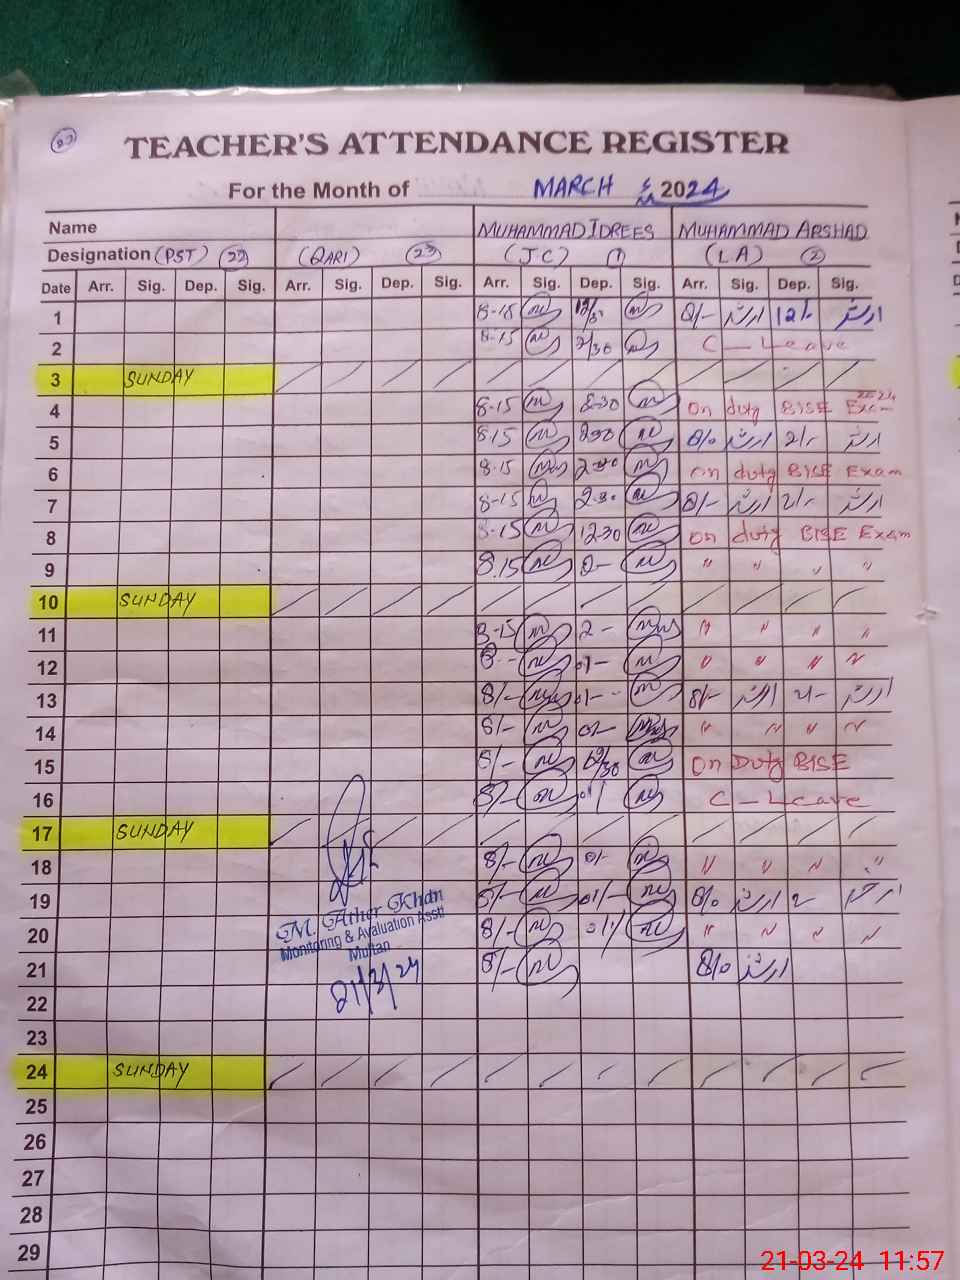 TEACHER'S ATTENDANCE REGISTER
For the Month of MARCH 2024
Name MUHAMMAD IDREES MUHAMMAD ARSHAD
Designation (PST) 22 (QARI) 23 (J.C) 1 (LA) 2
Date Arr. Sig. Dep. Sig. Arr. Sig. Dep. Sig. Arr. Sig. Dep. Sig. Arr. Sig. Dep. Sig.
1 8-15 8/- ارشد 12/- ارشد
2 8-15 2/30 C - Leave
3 SUNDAY
4 8-15 2-30 On duty BISE Exam
5 8.15 230 8/0 ارشد 2/- ارشد
6 8-15 2-30 On duty BISE Exam
7 8-15 2-30 8/- ارشد 2/- ارشد
8 8-15 1230 On duty BISE Exam
9 8.15 2- " " " "
10 SUNDAY
11 8-15 2- " " " "
12 " " " "
13 8/- 8/- ارشد 2/- ارشد
14 8/- " " " "
15 8/- 12/30 On Duty BISE
16 8/- C - Leave
17 SUNDAY
18 8/- " " " "
19 8/- 8/0 ارشد 2- ارشد
M. Ather Khan
20 8/- " " " "
Monitoring & Avaluation Asstt
Multan
21 8/- 8/0 ارشد
21/3/24
22
23
24 SUNDAY
25
26
27
28
29
21-03-24 11:57